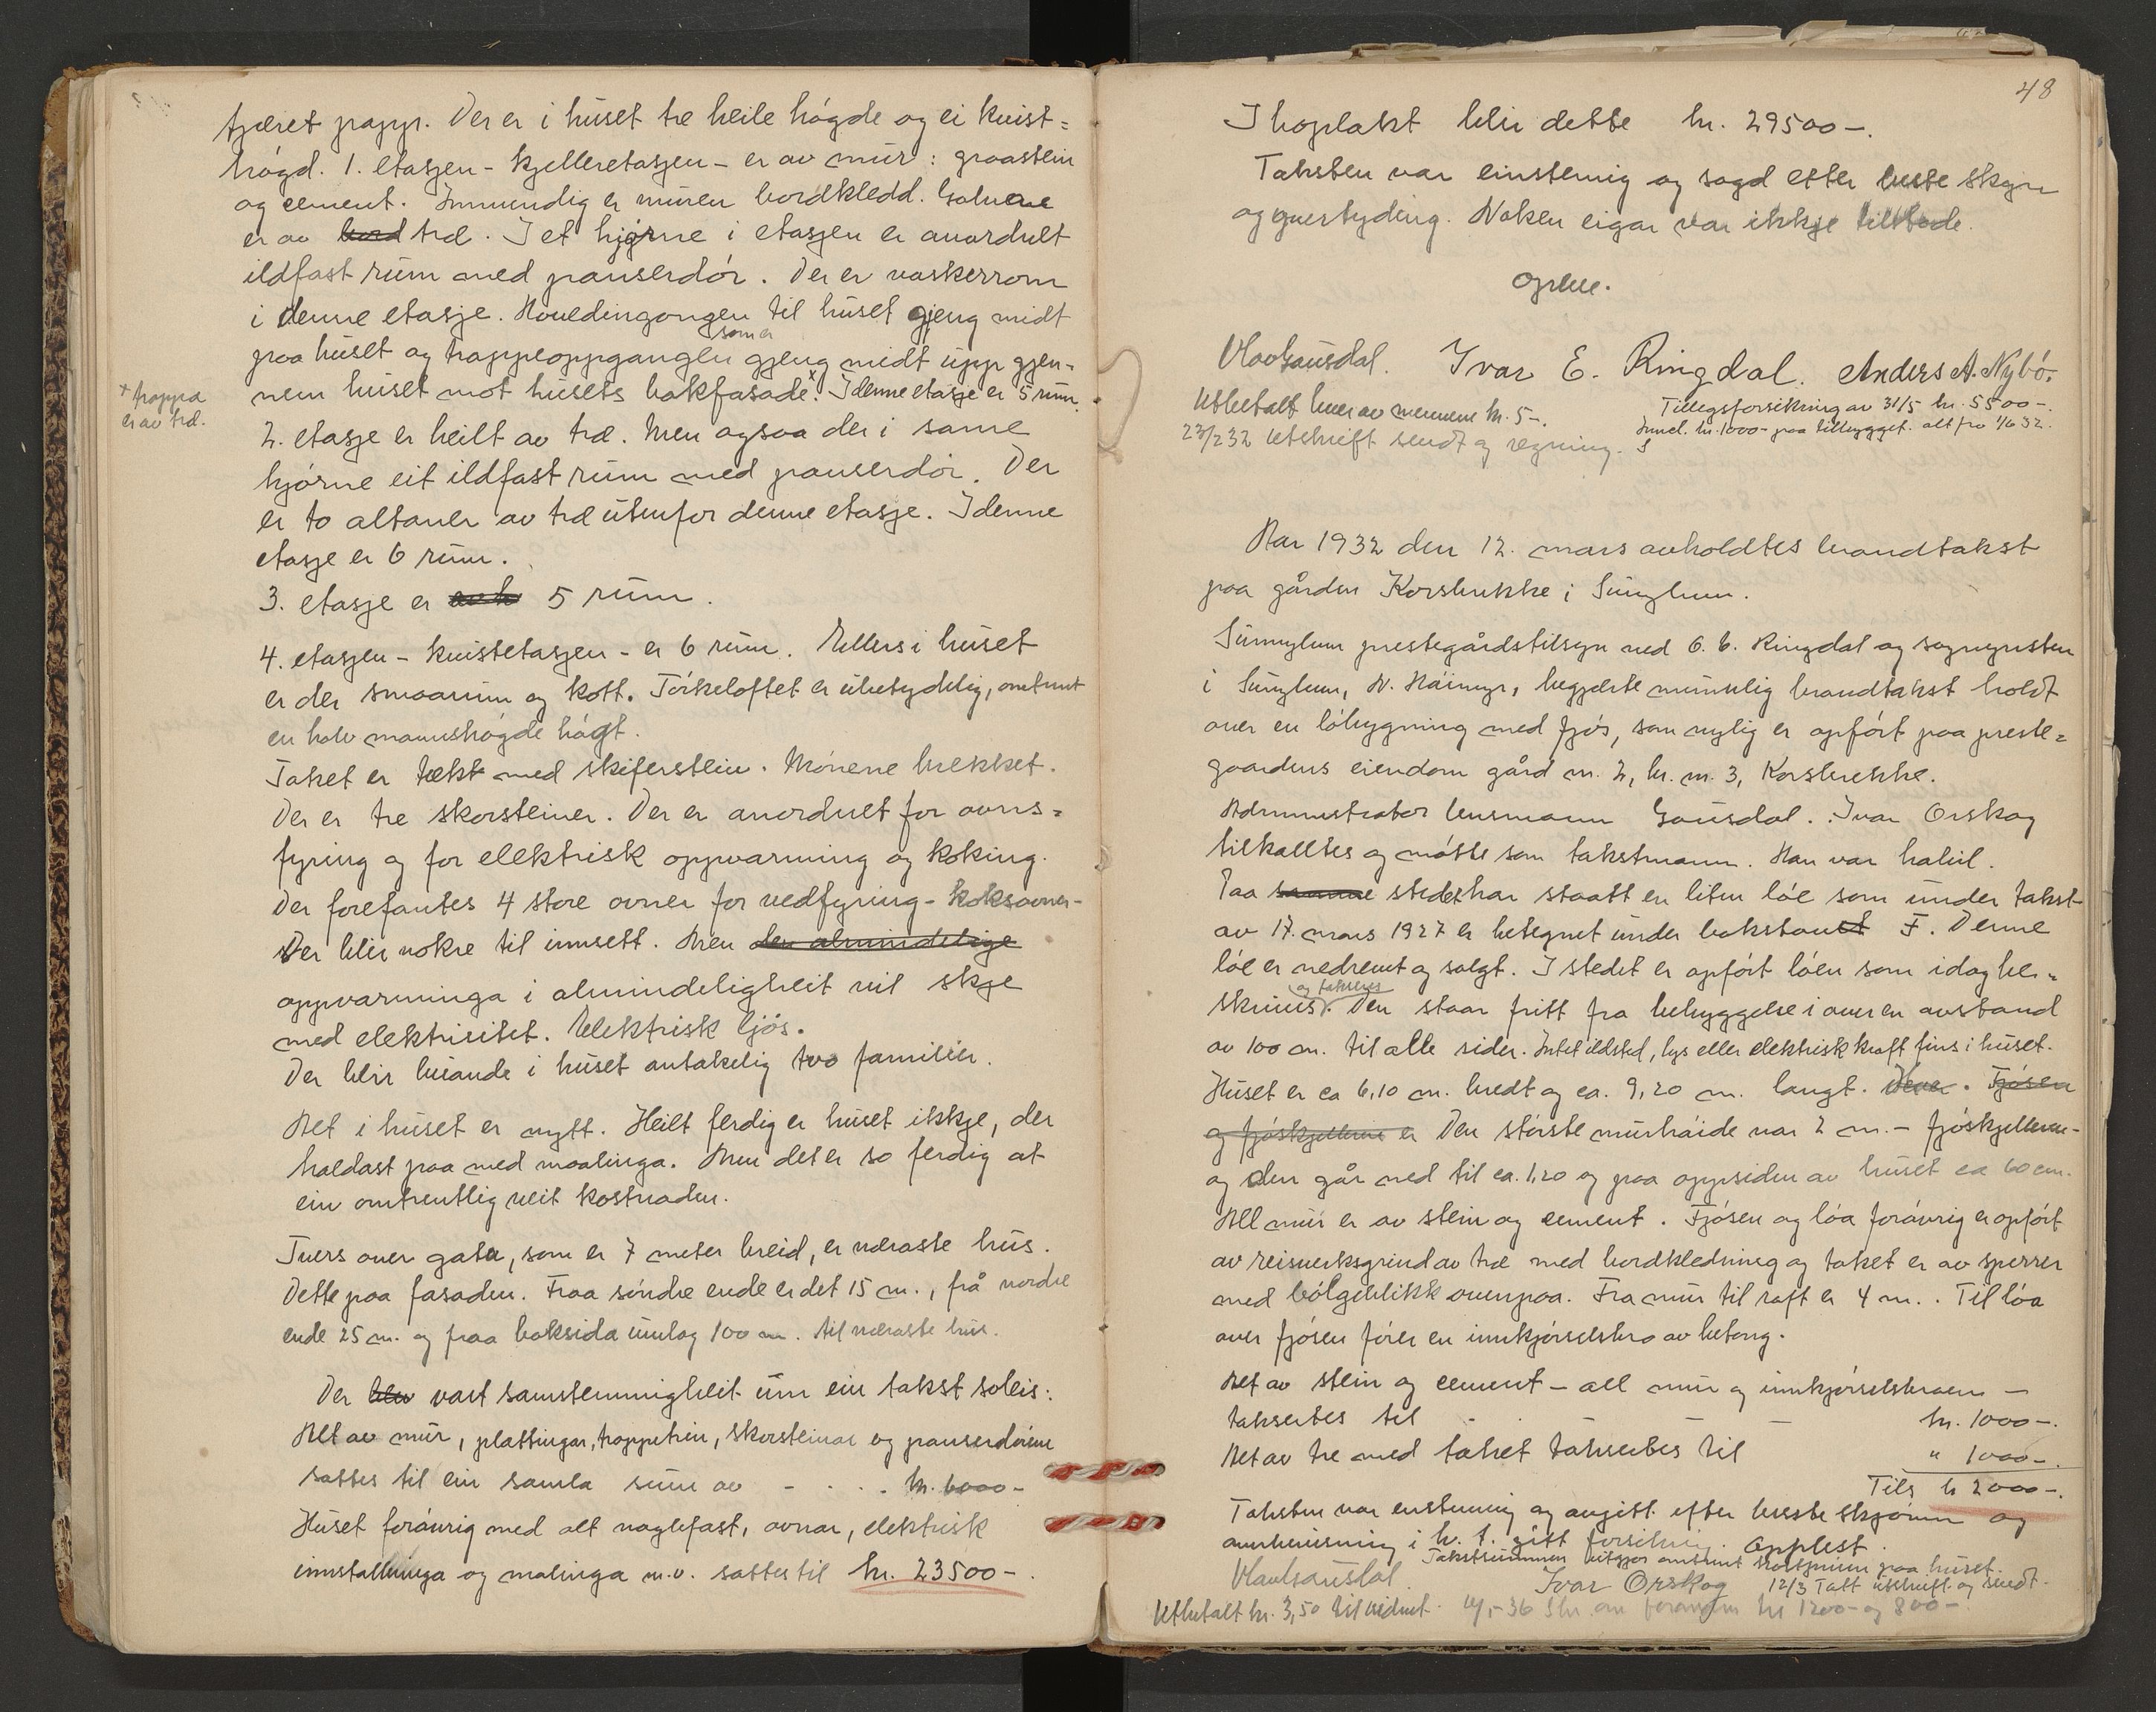 tjæret papp. Der er i huset tre heile høgde og ei kvist=
høgd. 1. etasjen - kjelleretasjen - er av mur: graastein
og cement. Innvendig er muren bordkledd. Golvene
er av bord træ. I et hjørne i etasjen er anordnet
ildfast rum med panserdør. Der er vaskerrom
i denne etasje. Hovedingongen til huset gjeng midt
som er
paa huset og trappeoppgangen gjeng midt upp gjen-
nem huset mot husets bakfasade.x I denne etasje er 5 rum.
+ trappa
er av træ.
2. etasje er heilt av træ. Men ogsaa der i same
hjørne eit ildfast rum med panserdør. Der
er to altaner av træ utenfor denne etasje. I denne
etasje er 6 rum.
3. etasje er 5 rum.
4. etasjen - kvistetasjen - er 6 rum. Ellers i huset
er der smaarum og kott. Tørkeloftet er ubetydelig, omtrent
en halv mannshøgde høgt.
Taket er tækt med skiferstein. Mønene brekket.
Der er tre skorsteiner. Der er anordnet for ovns=
fyring og for elektrisk oppvarming og koking.
Der forefantes 4 store ovner for vedfyring - koksovner -
Der blir nokre til innsett. Men den almindelige
oppvarminga i almindeligheit vil skje
med elektrisitet. Elektrisk ljos.
Der blir buande i huset antakelig tvo familier.
Alt i huset er nytt. Heilt ferdig er huset ikkje, der
haldast paa med maalinga. Men det er so ferdig at
ein omtrentlig veit kostnaden.
Tvers over gata, som er 7 meter breid, er næraste hus.
Dette paa fasaden. Fraa søndre ende er det 15 m., frå nordre
ende 25 m. og fraa baksida umlag 100 m. til næraste hus.
Der blev vart samstemmigheit um ein takst soleis:
Alt av mur, plattingar, trappetrin, skorsteinar og panserdørene
sattes til ein samla sum av - . . . kr. 6000-
Huset forøvrig med alt naglefast, ovnar, elektrisk
innstallninga og malinga m.v. sattes til kr. 23500-.
48
Ihoplakt blir dette kr. 29500-.
Taksten var einstemig og sagd etter beste skjøn
og yvertyding. Noken eigar var ikkje tilstede.
Oples.
OlavGausdal. Ivar E. Ringdal. Anders A. Nybø.
Utbetalt hver av mennene kr. 5-.
Tilegsforsikring av 31/5 kr. 5500-.
23/2 32 Utskrift sendt og regning.
Innel. kr. 1000- paa tilbygget. alt fra 1/6 32.
Aar 1932 den 12. mars avholdtes brandtakst
paa gården Korsbrekke i Sunylven.
Sunnylven prestegårdstilsyn ved E. E. Ringdal og sogneprsten
i Sunylven, N. Høimyr, begjærte muntlig brandtakst holdt
over en løbygning med fjøs, som nylig er opført paa preste=
gaardens eiendom gård nr. 2, br. nr. 3, Korsbrekke.
Administrator lensmann Gausdal. Ivar Orskog
tilkalltes og møtte som takstmann. Han var habil.
Paa samme stedet har staatt en liten løe som under takst
av 17. mars 1927 er betegnet under bokstavet F. Denne
løe er nedrevet og solgt. I stedet er opført løen som idag be-
og takseres
skrives. Den staar fritt fra bebyggelse i over en avstand
av 100 m. til alle sider. Intet ildsted, lys eller elektrisk kraft fins i huset.
Huset er ca 6,10 m. bredt og ca. 9,20 m. langt. . Fjøsen
og fjøskjelleren er Den største murhøide var 2 m. - fjøskjelleren -
og den går ned til ca. 1,20 og paa oppsiden av huset ca 60 cm.
All mur er av stein og cement. Fjøsen og løa forøvrig er opført
av reisverksgrind av træ med bordkledning og taket er av sperrer
med bølgeblikk ovenpaa. Fra mur til raft er 4 m.. Til løa
over fjøsen fører en innkjørselsbro av betong.
Alt av stein og cement - all mur og innkjørselsbroen -
takseres til - - - kr. 1000-.
Alt av tre med taket takseres til " 1000-.
Tils kr 2000-.
Taksten var enstemmig og avgitt efter beste skjønn og
overbevisning i h. t. gitt forsikring. Opplest.
Takstsummen utgjør omtrent kostprisen paa huset.
OlavGausdal. Ivar Orskog 12/3 Tatt utskrift og sendt.
Utbetalt kr. 3,50 til vidnet.